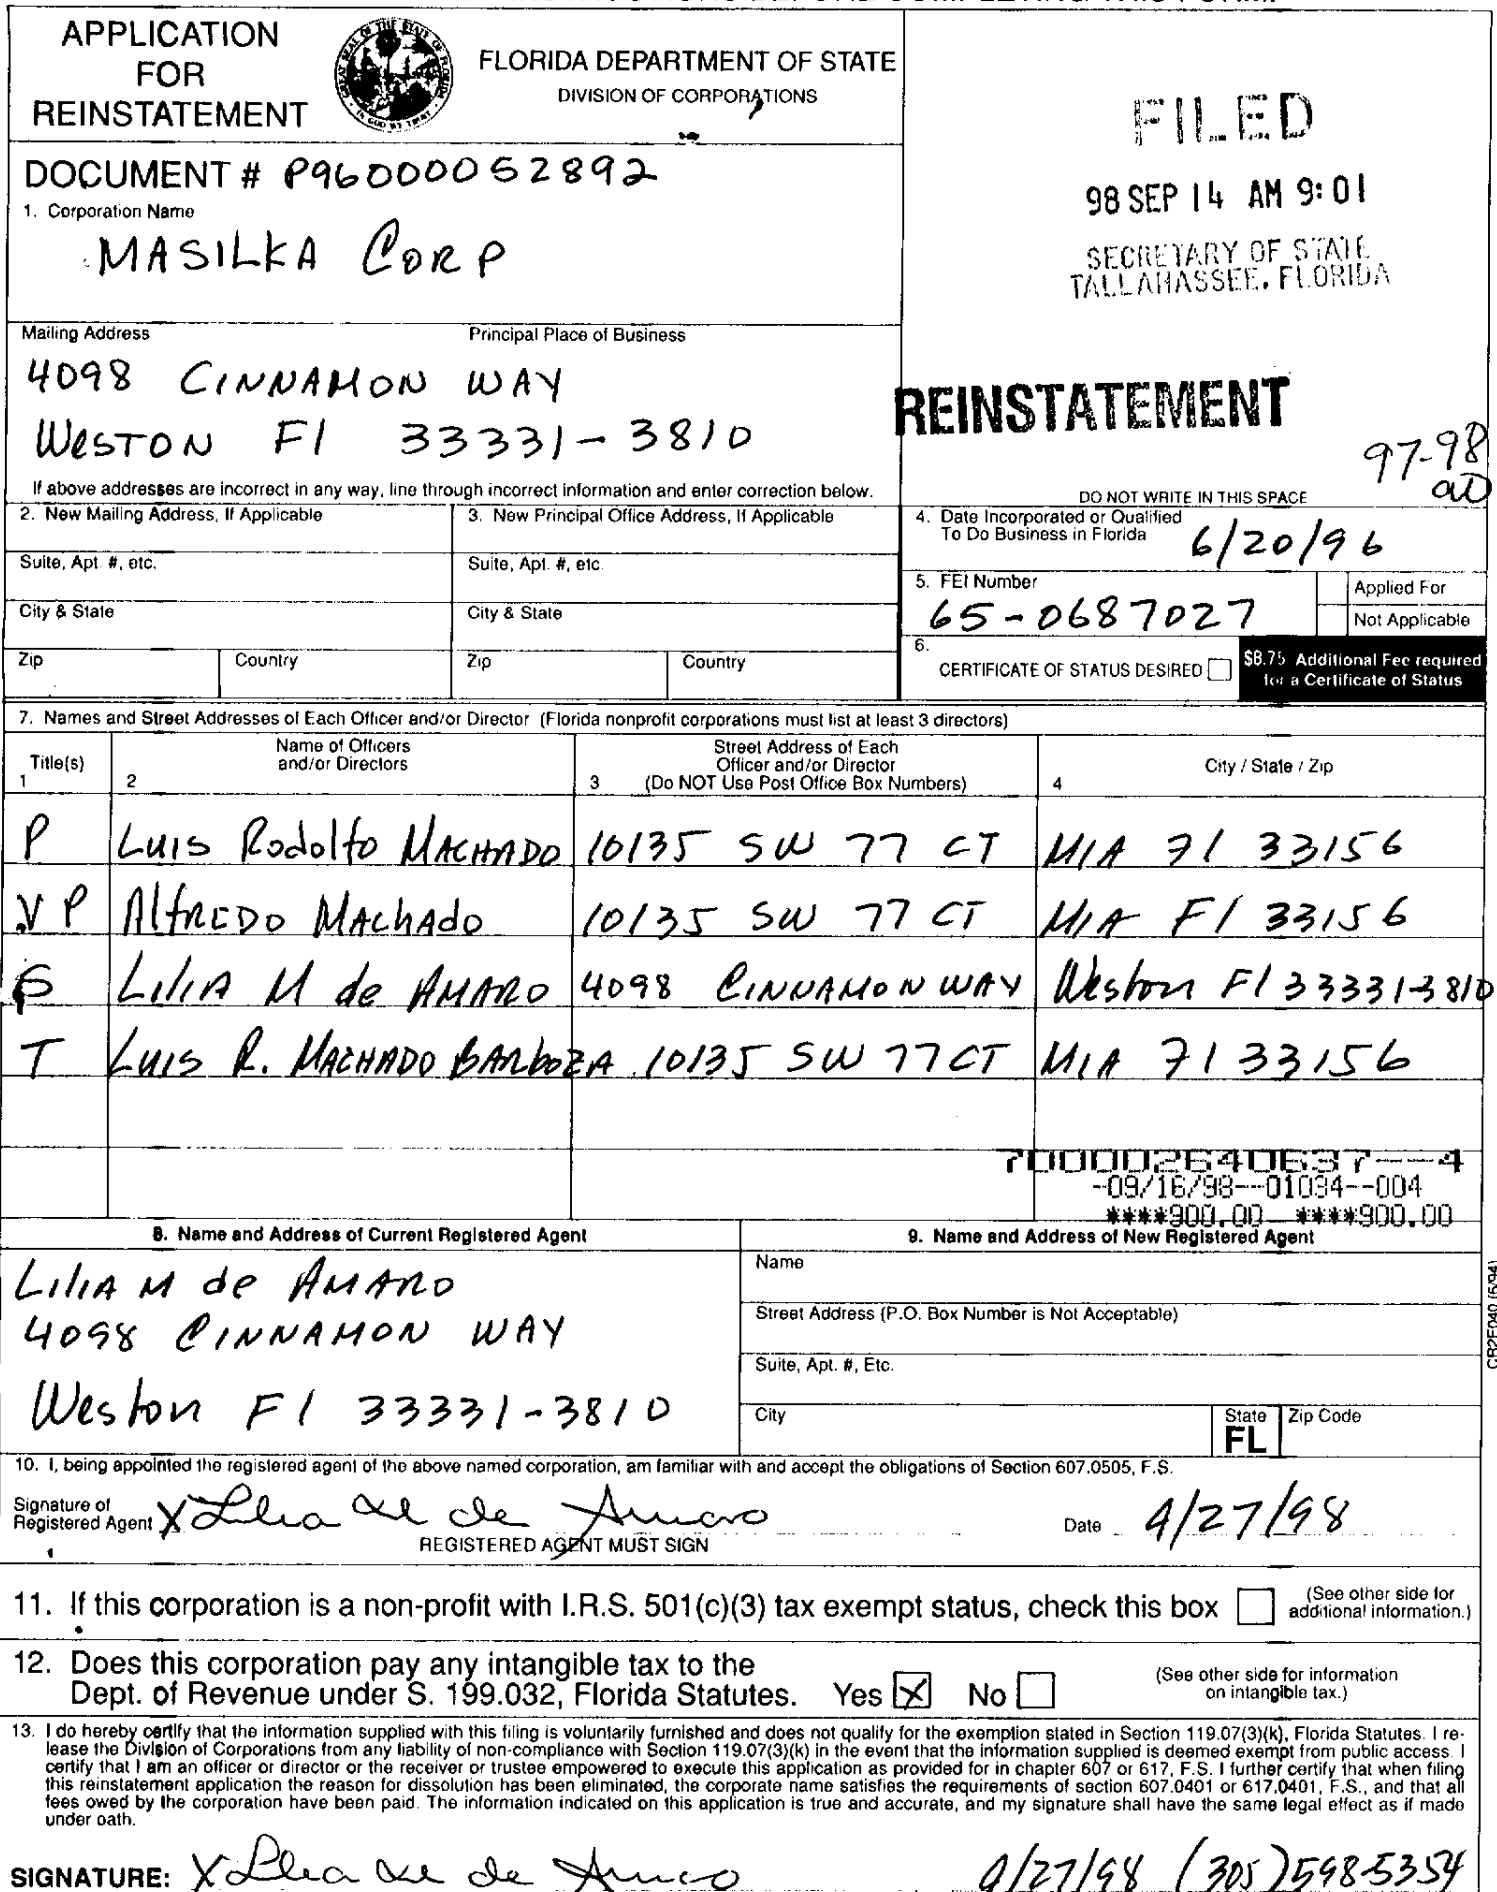 APPLICATION
FOR
REINSTATEMENT
FLORIDA DEPARTMENT OF STATE
DIVISION OF CORPORATIONS
FILED
98 SEP 14 AM 9:01
SECRETARY OF STATE
TALLAHASSEE, FLORIDA
DOCUMENT # P96000052892
1. Corporation Name
MASILKA CORP
Mailing Address Principal Place of Business
4098 CINNAMON WAY
WESTON Fl 33331-3810
REINSTATEMENT
97-98
If above addresses are incorrect in any way, line through incorrect information and enter correction below.
DO NOT WRITE IN THIS SPACE
2. New Mailing Address, If Applicable 3. New Principal Office Address, If Applicable
4. Date Incorporated or Qualified
To Do Business in Florida 6/20/96
Suite, Apt. #, etc. Suite, Apt. #, etc.
5. FEI Number Applied For
65-0687027 Not Applicable
City & State City & State
6.
CERTIFICATE OF STATUS DESIRED $8.75 Additional Fee required
for a Certificate of Status
Zip Country Zip Country
7. Names and Street Addresses of Each Officer and/or Director (Florida nonprofit corporations must list at least 3 directors)
Title(s) Name of Officers and/or Directors Street Address of Each Officer and/or Director (Do NOT Use Post Office Box Numbers) City / State / Zip
1 2 3 4
P Luis Rodolfo MACHADO 10135 SW 77 CT MIA Fl 33156
VP AlfREDO MAChAdo 10135 SW 77 CT MIA Fl 33156
S LiliA M de AMARO 4098 CINNAMON WAY Weston Fl 33331-3810
T Luis R. MACHADO BARboZA 10135 SW 77 CT MIA Fl 33156
700002640637--4
-09/16/98--01034--004
****900.00 ****900.00
8. Name and Address of Current Registered Agent 9. Name and Address of New Registered Agent
LiliA M de AMARO
4098 CINNAMON WAY
Weston Fl 33331-3810
Name
Street Address (P.O. Box Number is Not Acceptable)
Suite, Apt. #, Etc.
City State FL Zip Code
CR2E040 (5/94)
10. I, being appointed the registered agent of the above named corporation, am familiar with and accept the obligations of Section 607.0505, F.S.
Signature of
Registered Agent X Lilia M de Amaro Date 4/27/98
REGISTERED AGENT MUST SIGN
11. If this corporation is a non-profit with I.R.S. 501(c)(3) tax exempt status, check this box (See other side for
additional information.)
12. Does this corporation pay any intangible tax to the
Dept. of Revenue under S. 199.032, Florida Statutes. Yes X No (See other side for information
on intangible tax.)
13. I do hereby certify that the information supplied with this filing is voluntarily furnished and does not qualify for the exemption stated in Section 119.07(3)(k), Florida Statutes. I re-
lease the Division of Corporations from any liability of non-compliance with Section 119.07(3)(k) in the event that the information supplied is deemed exempt from public access. I
certify that I am an officer or director or the receiver or trustee empowered to execute this application as provided for in chapter 607 or 617, F.S. I further certify that when filing
this reinstatement application the reason for dissolution has been eliminated, the corporate name satisfies the requirements of section 607.0401 or 617.0401, F.S., and that all
fees owed by the corporation have been paid. The information indicated on this application is true and accurate, and my signature shall have the same legal effect as if made
under oath.
SIGNATURE: X Lilia M de Amaro 4/27/98 (305)598-5354